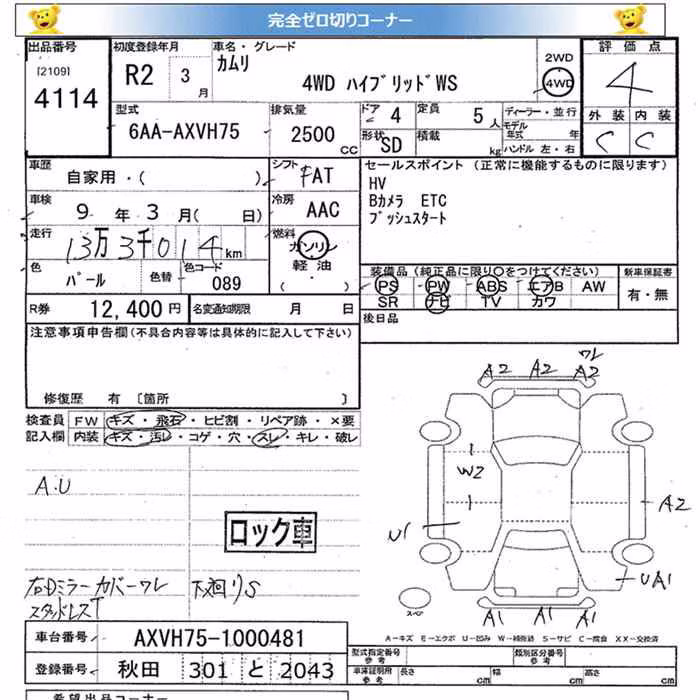 完全ゼロ切りコーナー
出品番号
[2109]
4114
初度登録年月
R2 3 月
車名・グレード
カムリ
4WD ハイブリッドWS
2WD
4WD
評価点
4
外装 内装
C C
型式
6AA-AXVH75
排気量
2500 CC
ドア 4
形状 SD
定員 5 人
積載 kg
ディーラー・並行
モデル年式 年
ハンドル 左・右
車歴
自家用・( )
シフト
FAT
車検
9 年 3 月( 日)
冷房
AAC
走行
13万3千014 km
燃料
ガソリン
軽油
( )
色
パール
色替
色コード
089
セールスポイント (正常に機能するものに限ります)
HV
Bカメラ ETC
プッシュスタート
装備品 (純正品に限り〇をつけてください)
PS PW ABS エアB AW
SR ナビ TV カワ
新車保証書
有・無
後日品
R券 12,400円
名変通知期限 月 日
注意事項申告欄 (不具合内容等は具体的に記入して下さい)
修復歴 有 [箇所 ]
検査員記入欄
FW キズ・飛石・ヒビ割・リペア跡・×要
内装 キズ・汚レ・コゲ・穴・スレ・キレ・破レ
A.U
ロック車
右Dミラーカバーワレ
スタッドレスT
下廻りS
ワレ
A2 A2 A2
W2
A2
U1
UA1
A1 A1 A1
スペア
A-キズ E-エクボ U-凹み W-補修跡 S-サビ C-腐食 XX-交換済
車台番号 AXVH75-1000481
登録番号 秋田 301 と 2043
型式指定番号 参考
類別区分番号 参考
車庫証明用 参考
長さ cm 幅 cm 高さ cm
希望出品コーナー